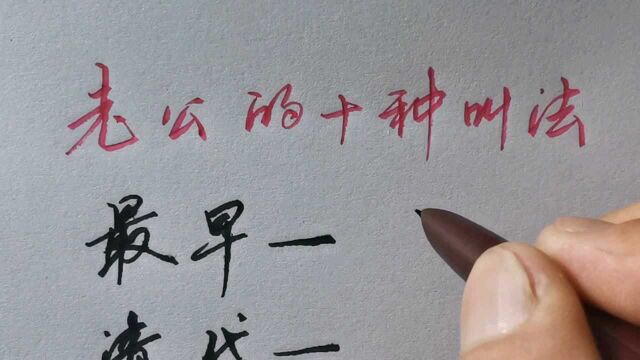 老公的十种叫法
最早一
清代一